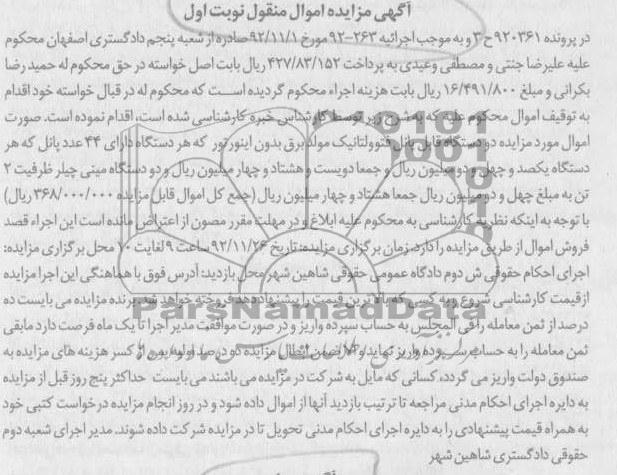 آگهی مزایده اموال منقول نوبت اول
در پرونده ۹۲۰۳۶۱ ح ۳ و به موجب اجرائیه ۲۶۳-۹۲ مورخ ۹۲/۱۱/۱ صادره از شعبه پنجم دادگستری اصفهان محکوم
علیه علیرضا جنتی و مصطفی وعیدی به پرداخت ۴۲۷/۸۳/۱۵۲ ریال بابت اصل خواسته در حق محکوم له حمید رضا
بکرانی و مبلغ ۱۶/۴۹۱/۸۰۰ ریال بابت هزینه اجراء محکوم گردیده است که محکوم له در قبال خواسته خود اقدام
به توقیف اموال محکوم علیه که به شرح زیر توسط کارشناس خبره کارشناسی شده است، اقدام نموده است. صورت
اموال مورد مزایده دو دستگاه قابل پانل فتوولتائیک مولد برق بدون اینورتور که هر دستگاه دارای ۴۴ عدد پانل که هر
دستگاه یکصد و چهل و دو میلیون ریال و جمعا دویست و هشتاد و چهار میلیون ریال و دو دستگاه مینی چیلر ظرفیت ۲
تن به مبلغ چهل و دو میلیون ریال جمعا هشتاد و چهار میلیون ریال (جمع کل اموال قابل مزایده ۳۶۸/۰۰۰/۰۰۰ ریال)
با توجه به اینکه نظریه کارشناسی به محکوم علیه ابلاغ و در مهلت مقرر مصون از اعتراض مانده است این اجراء قصد
فروش اموال از طریق مزایده را دارد. زمان برگزاری مزایده: تاریخ ۹۲/۱۱/۲۶ ساعت ۹ لغایت ۱۰ محل برگزاری مزایده:
اجرای احکام حقوقی ش دوم دادگاه عمومی حقوقی شاهین شهر محل بازدید: آدرس فوق با هماهنگی این اجرا مزایده
از قیمت کارشناسی شروع و به کسی که بالاترین قیمت را پیشنهاد دهد فروخته خواهد شد. برنده مزایده می بایست ده
درصد از ثمن معامله را فی المجلس به حساب سپرده واریز و در صورت موافقت مدیر اجرا تا یک ماه فرصت دارد مابقی
ثمن معامله را به حساب سپرده واریز نماید و الا ضمن ابطال مزایده ده درصد اولیه پس از کسر هزینه های مزایده به
صندوق دولت واریز می گردد، کسانی که مایل به شرکت در مزایده می باشند می بایست حداکثر پنج روز قبل از مزایده
به دایره اجرای احکام مدنی مراجعه تا ترتیب بازدید آنها از اموال داده شود و در روز انجام مزایده درخواست کتبی خود
به همراه قیمت پیشنهادی را به دایره اجرای احکام مدنی تحویل تا در مزایده شرکت داده شوند. مدیر اجرای شعبه دوم
حقوقی دادگستری شاهین شهر
ParsNamadData